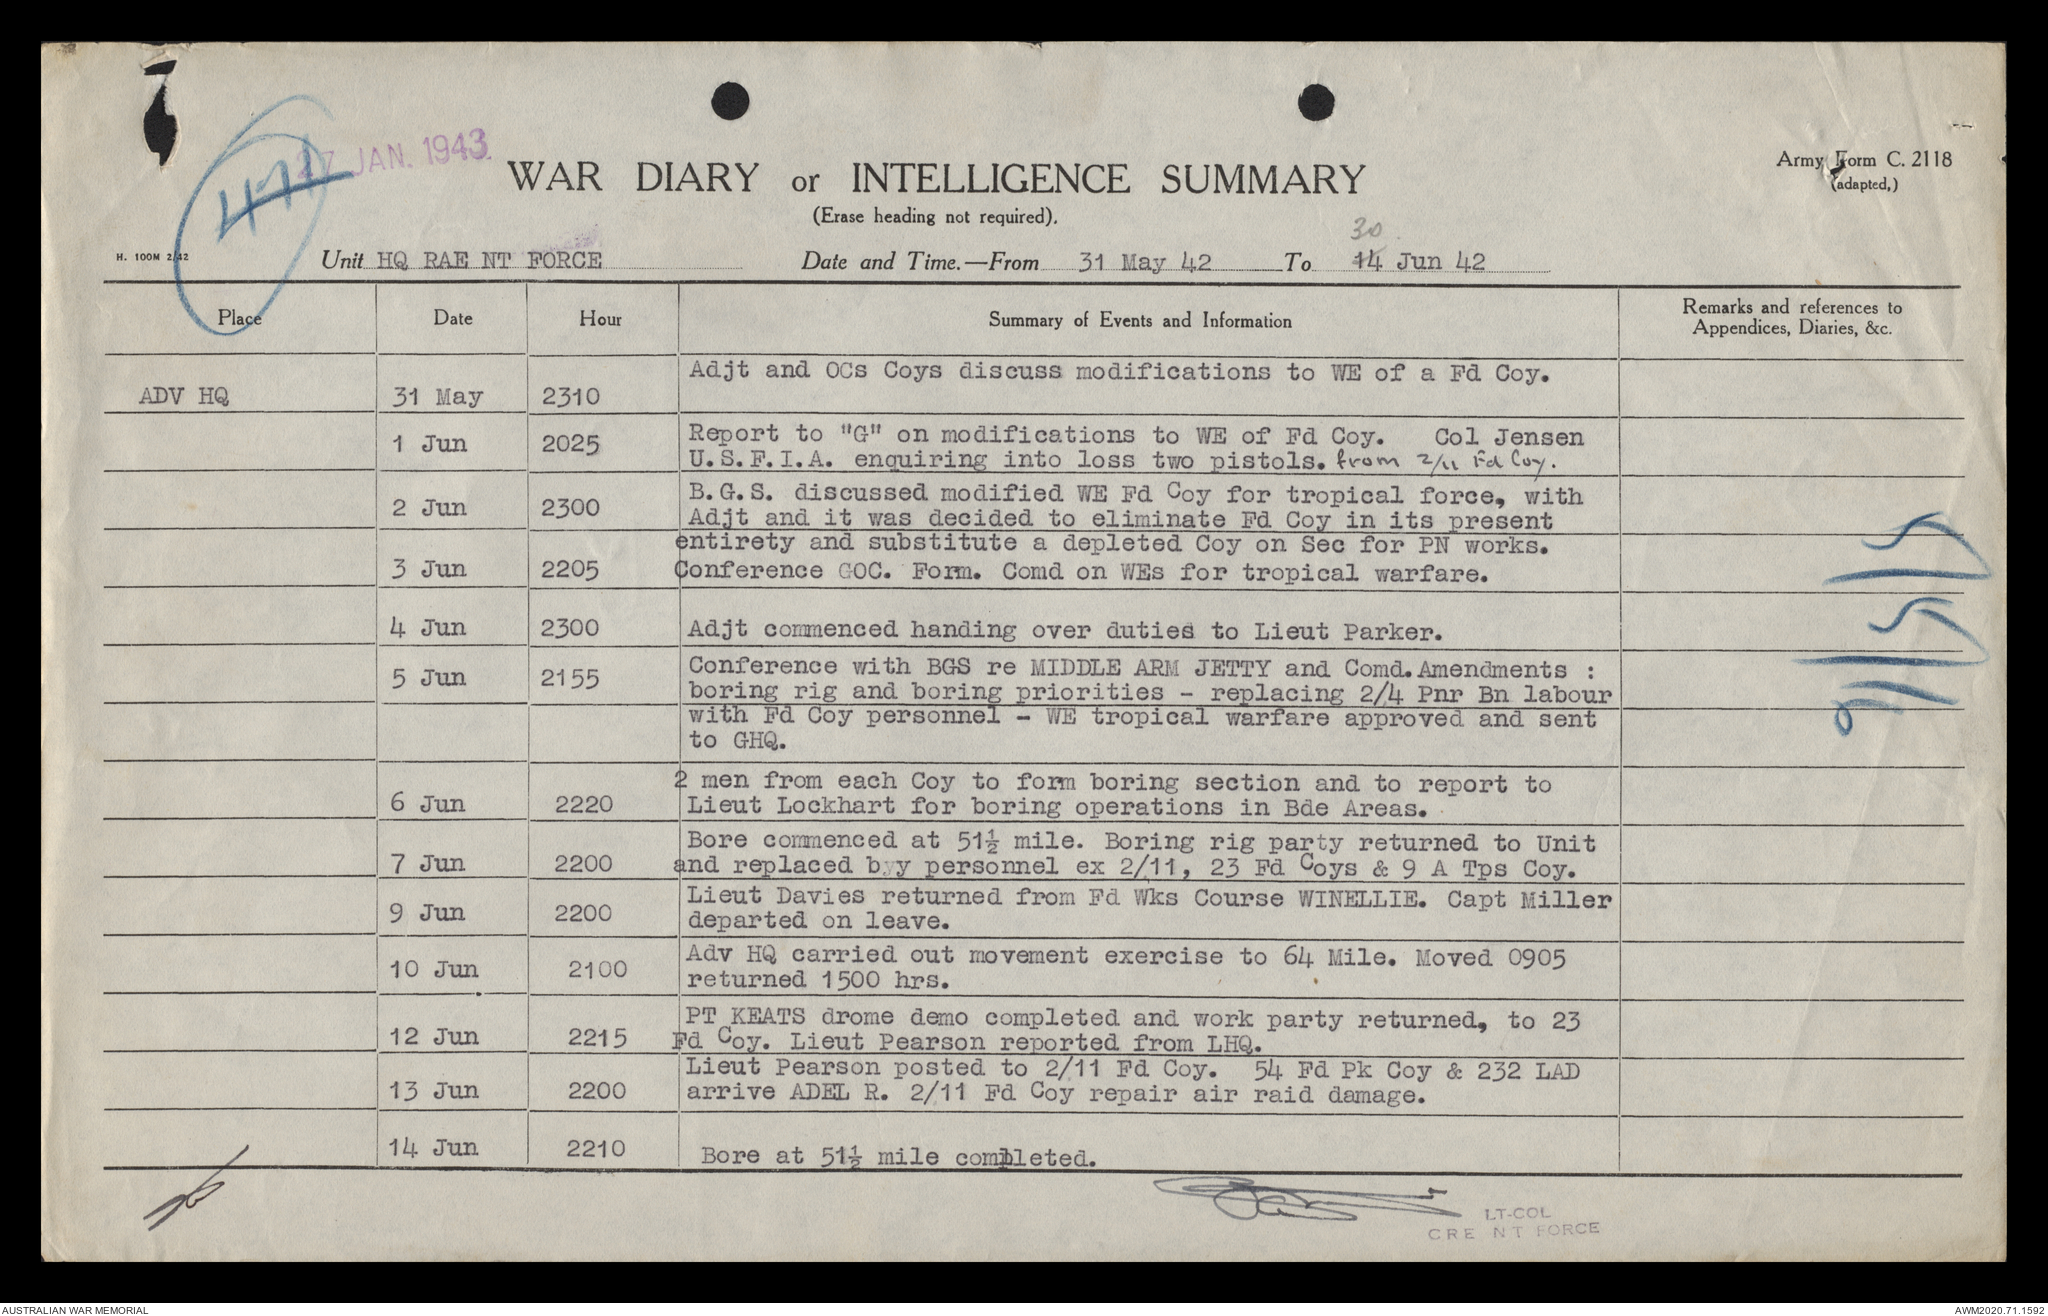 27 JAN. 1943.
471
WAR DIARY or INTELLIGENCE SUMMARY
Army Form C. 2118
(adapted,)
(Erase heading not required).
30
H. 100M 2/42
Unit HQ RAE NT FORCE
Date and Time.—From 31 May 42 To 14 Jun 42
Place
Date
Hour
Summary of Events and Information
Remarks and references to
Appendices, Diaries, &c.
Adjt and OCs Coys discuss modifications to WE of a Fd Coy.
ADV HQ 31 May 2310
1 Jun 2025 Report to "G" on modifications to WE of Fd Coy. Col Jensen
U.S.F.I.A. enquiring into loss two pistols. from 2/11 Fd Coy.
2 Jun 2300 B.G.S. discussed modified WE Fd Coy for tropical force, with
Adjt and it was decided to eliminate Fd Coy in its present
entirety and substitute a depleted Coy on Sec for PN works.
3 Jun 2205 Conference GOC. Form. Comd on WEs for tropical warfare.
4 Jun 2300 Adjt commenced handing over duties to Lieut Parker.
5 Jun 2155 Conference with BGS re MIDDLE ARM JETTY and Comd. Amendments :
boring rig and boring priorities - replacing 2/4 Pnr Bn labour
with Fd Coy personnel - WE tropical warfare approved and sent
to GHQ.
2 men from each Coy to form boring section and to report to
6 Jun 2220 Lieut Lockhart for boring operations in Bde Areas.
Bore commenced at 51½ mile. Boring rig party returned to Unit
7 Jun 2200 and replaced byy personnel ex 2/11, 23 Fd Coys & 9 A Tps Coy.
9 Jun 2200 Lieut Davies returned from Fd Wks Course WINELLIE. Capt Miller
departed on leave.
10 Jun 2100 Adv HQ carried out movement exercise to 64 Mile. Moved 0905
returned 1500 hrs.
PT KEATS drome demo completed and work party returned, to 23
12 Jun 2215 Fd Coy. Lieut Pearson reported from LHQ.
Lieut Pearson posted to 2/11 Fd Coy. 54 Fd Pk Coy & 232 LAD
13 Jun 2200 arrive ADEL R. 2/11 Fd Coy repair air raid damage.
14 Jun 2210 Bore at 51½ mile completed.
LT-COL
CRE NT FORCE
AUSTRALIAN WAR MEMORIAL
AWM2020.71.1592